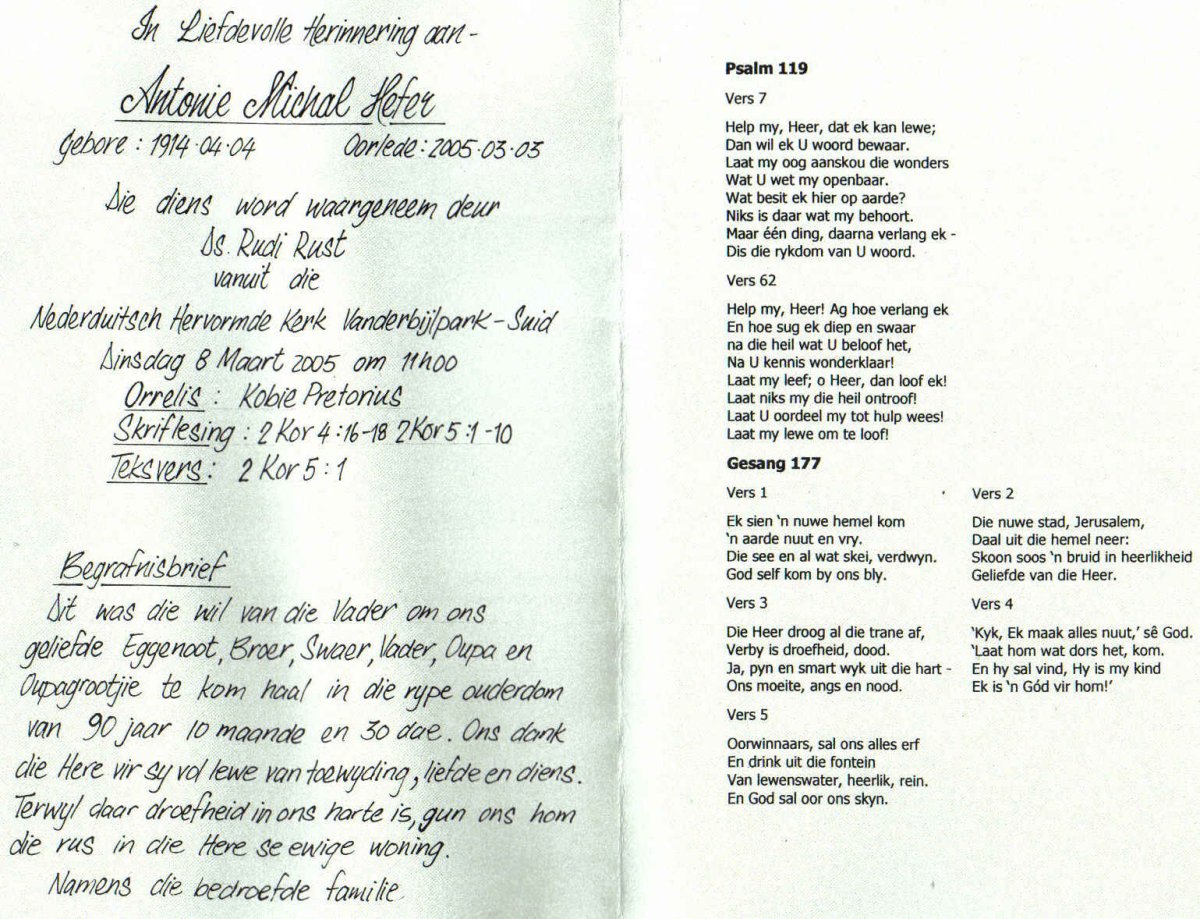 In Liefdevolle Herinnering aan-
Antonie Michal Hefer
Gebore : 1914.04.04 Oorlede : 2005.03.03
Die diens word waargeneem deur
Ds. Rudi Rust
vanuit die
Nederduitsch Hervormde Kerk Vanderbijlpark-Suid
Dinsdag 8 Maart 2005 om 11h00
Orrelis : Kobie Pretorius
Skriflesing : 2 Kor 4:16-18 2 Kor 5:1-10
Teksvers : 2 Kor 5:1
Begrafnisbrief
Dit was die wil van die Vader om ons
geliefde Eggenoot, Broer, Swaer, Vader, Oupa en
Oupagrootjie te kom haal in die rype ouderdom
van 90 jaar 10 maande en 30 dae. Ons dank
die Here vir sy vol lewe van toewyding, liefde en diens.
Terwyl daar droefheid in ons harte is, gun ons hom
die rus in die Here se ewige woning.
Namens die bedroefde familie
Psalm 119
Vers 7
Help my, Heer, dat ek kan lewe;
Dan wil ek U woord bewaar.
Laat my oog aanskou die wonders
Wat U wet my openbaar.
Wat besit ek hier op aarde?
Niks is daar wat my behoort.
Maar één ding, daarna verlang ek -
Dis die rykdom van U woord.
Vers 62
Help my, Heer! Ag hoe verlang ek
En hoe sug ek diep en swaar
na die heil wat U beloof het,
Na U kennis wonderklaar!
Laat my leef; o Heer, dan loof ek!
Laat niks my die heil ontroof!
Laat U oordeel my tot hulp wees!
Laat my lewe om te loof!
Gesang 177
Vers 1
Ek sien 'n nuwe hemel kom
'n aarde nuut en vry.
Die see en al wat skei, verdwyn.
God self kom by ons bly.
Vers 2
Die nuwe stad, Jerusalem,
Daal uit die hemel neer:
Skoon soos 'n bruid in heerlikheid
Geliefde van die Heer.
Vers 3
Die Heer droog al die trane af,
Verby is droefheid, dood.
Ja, pyn en smart wyk uit die hart -
Ons moeite, angs en nood.
Vers 4
'Kyk, Ek maak alles nuut,' sê God.
'Laat hom wat dors het, kom.
En hy sal vind, Hy is my kind
Ek is 'n Gód vir hom!'
Vers 5
Oorwinnaars, sal ons alles erf
En drink uit die fontein
Van lewenswater, heerlik, rein.
En God sal oor ons skyn.